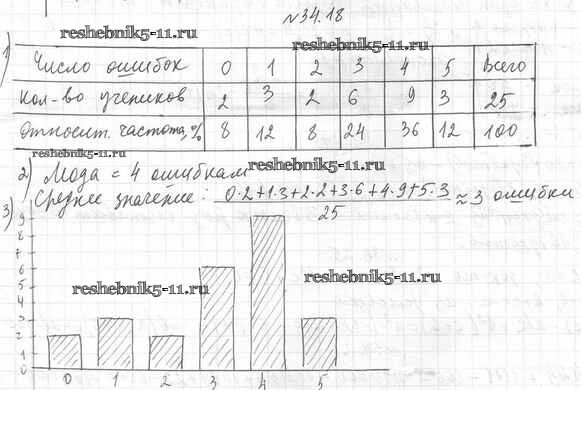 №34.18
reshebnik5-11.ru reshebnik5-11.ru
1) Число ошибок 0 1 2 3 4 5 Всего
Кол-во учеников 2 3 2 6 9 3 25
Относит. частота, % 8 12 8 24 36 12 100
reshebnik5-11.ru
2) Мода = 4 ошибкам reshebnik5-11.ru
Среднее значение: 0·2+1·3+2·2+3·6+4·9+5·3 / 25 ≈ 3 ошибки
3)
9
8
7
6
5
4
3
2
1
0
reshebnik5-11.ru reshebnik5-11.ru
0 1 2 3 4 5